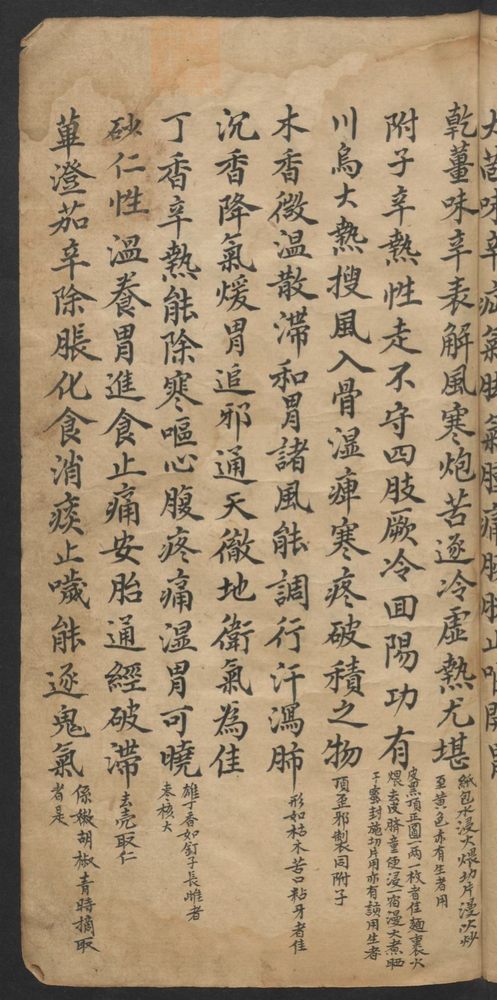 味辛
乾薑味辛表解風寒炮苦逐冷虛熱尤堪
紙包水浸火煨切片漫火炒
至黃色亦有生者用
附子辛熱性走不守四肢厥冷回陽功有
皮黑頂正圓一兩一枚者佳麵裹火
煨去皮臍童便浸一宿漫火煮晒
干密封施切片用亦有該用生者
川烏大熱搜風入骨湿痺寒疼破積之物
頂歪邪製同附子
木香微温散滞和胃諸風能調行汗瀉肺
形如枯木苦口粘牙者佳
沉香降氣煖胃追邪通天徹地衛氣為佳
丁香辛熱能除寒嘔心腹疼痛湿胃可曉
雄丁香如釘子長雌者
枣核大
砂仁性溫養胃進食止痛安胎通經破滞
去壳取仁
蓽澄茄辛除脹化食消痰止噦能逐鬼氣
係嫰胡椒青時摘取
者是